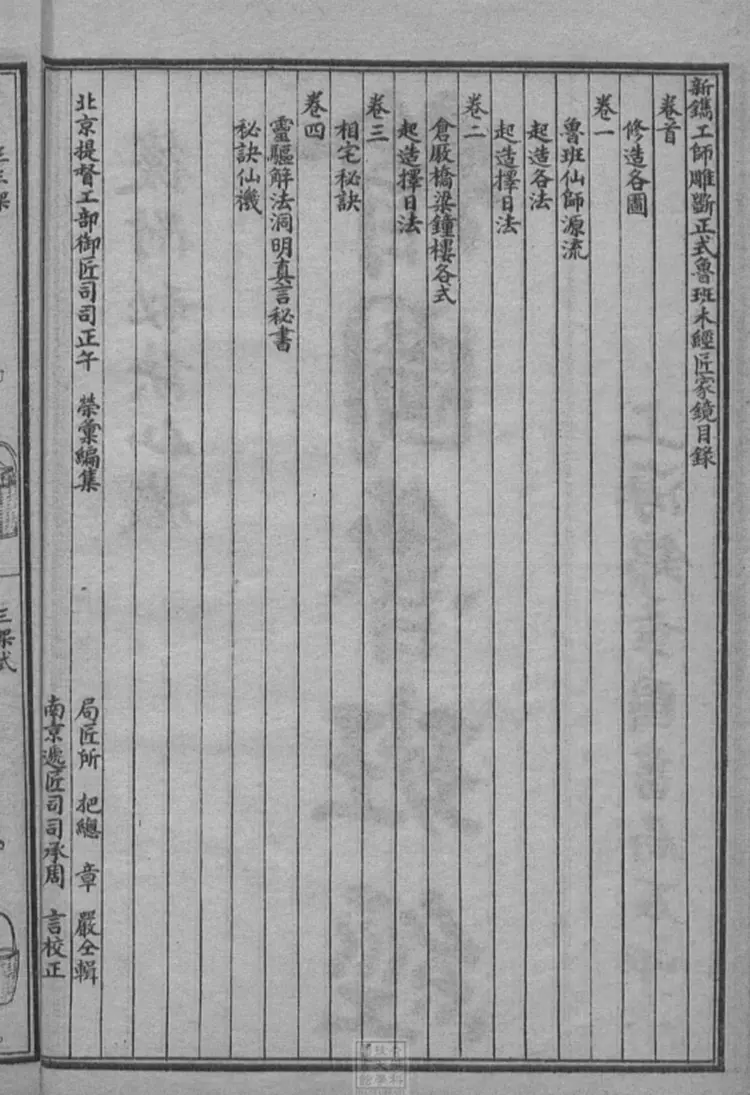 新鐫工師雕斵正式魯班木經匠家鏡目錄
卷首
修造各圖
卷一
魯班仙師源流
起造各法
起造擇日法
卷二
倉厫橋梁鐘樓各式
起造擇日法
卷三
相宅秘訣
卷四
靈驅解法洞明真言秘書
秘訣仙機
北京提督工部御匠司司正午 榮彙編集
局匠所 把總 章 嚴仝輯
南京遞匠司司承周 言校正
三架式